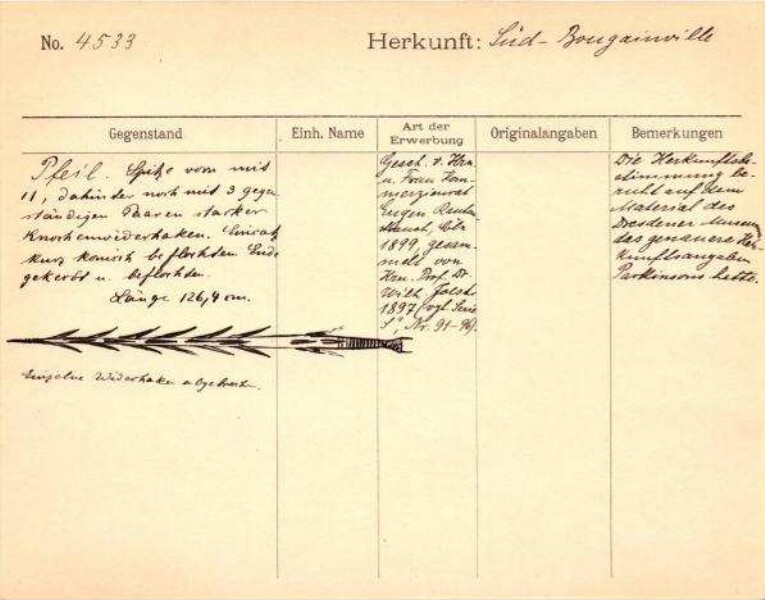 No. 4533
Herkunft: Süd-Bougainville
Gegenstand
Einh. Name
Art der
Erwerbung
Originalangaben
Bemerkungen
Pfeil. Spitze vorn mit
11, dahinter noch mit 3 gegen-
ständigen Paaren starker
Knochenwiderhaken. Einsatz
kurz konisch beflochten. Ende
gekerbt u. beflochten.
Länge 126,4 cm.
Einzelne Widerhaken abgebrochen.
Gesch. v. Hrn.
u. Frau Kom-
merzienrat
Eugen
Cöln
1899, gesam-
melt von
Hrn. Prof. Dr.
Wilh. Joest
1897 (vgl. Serie
Nr. 91-96).
Die Herkunftsbe-
stimmung be-
ruht auf dem
Material des
Dresdener Museums,
das genauere Her-
kunftsangaben
Parkinsons hatte.